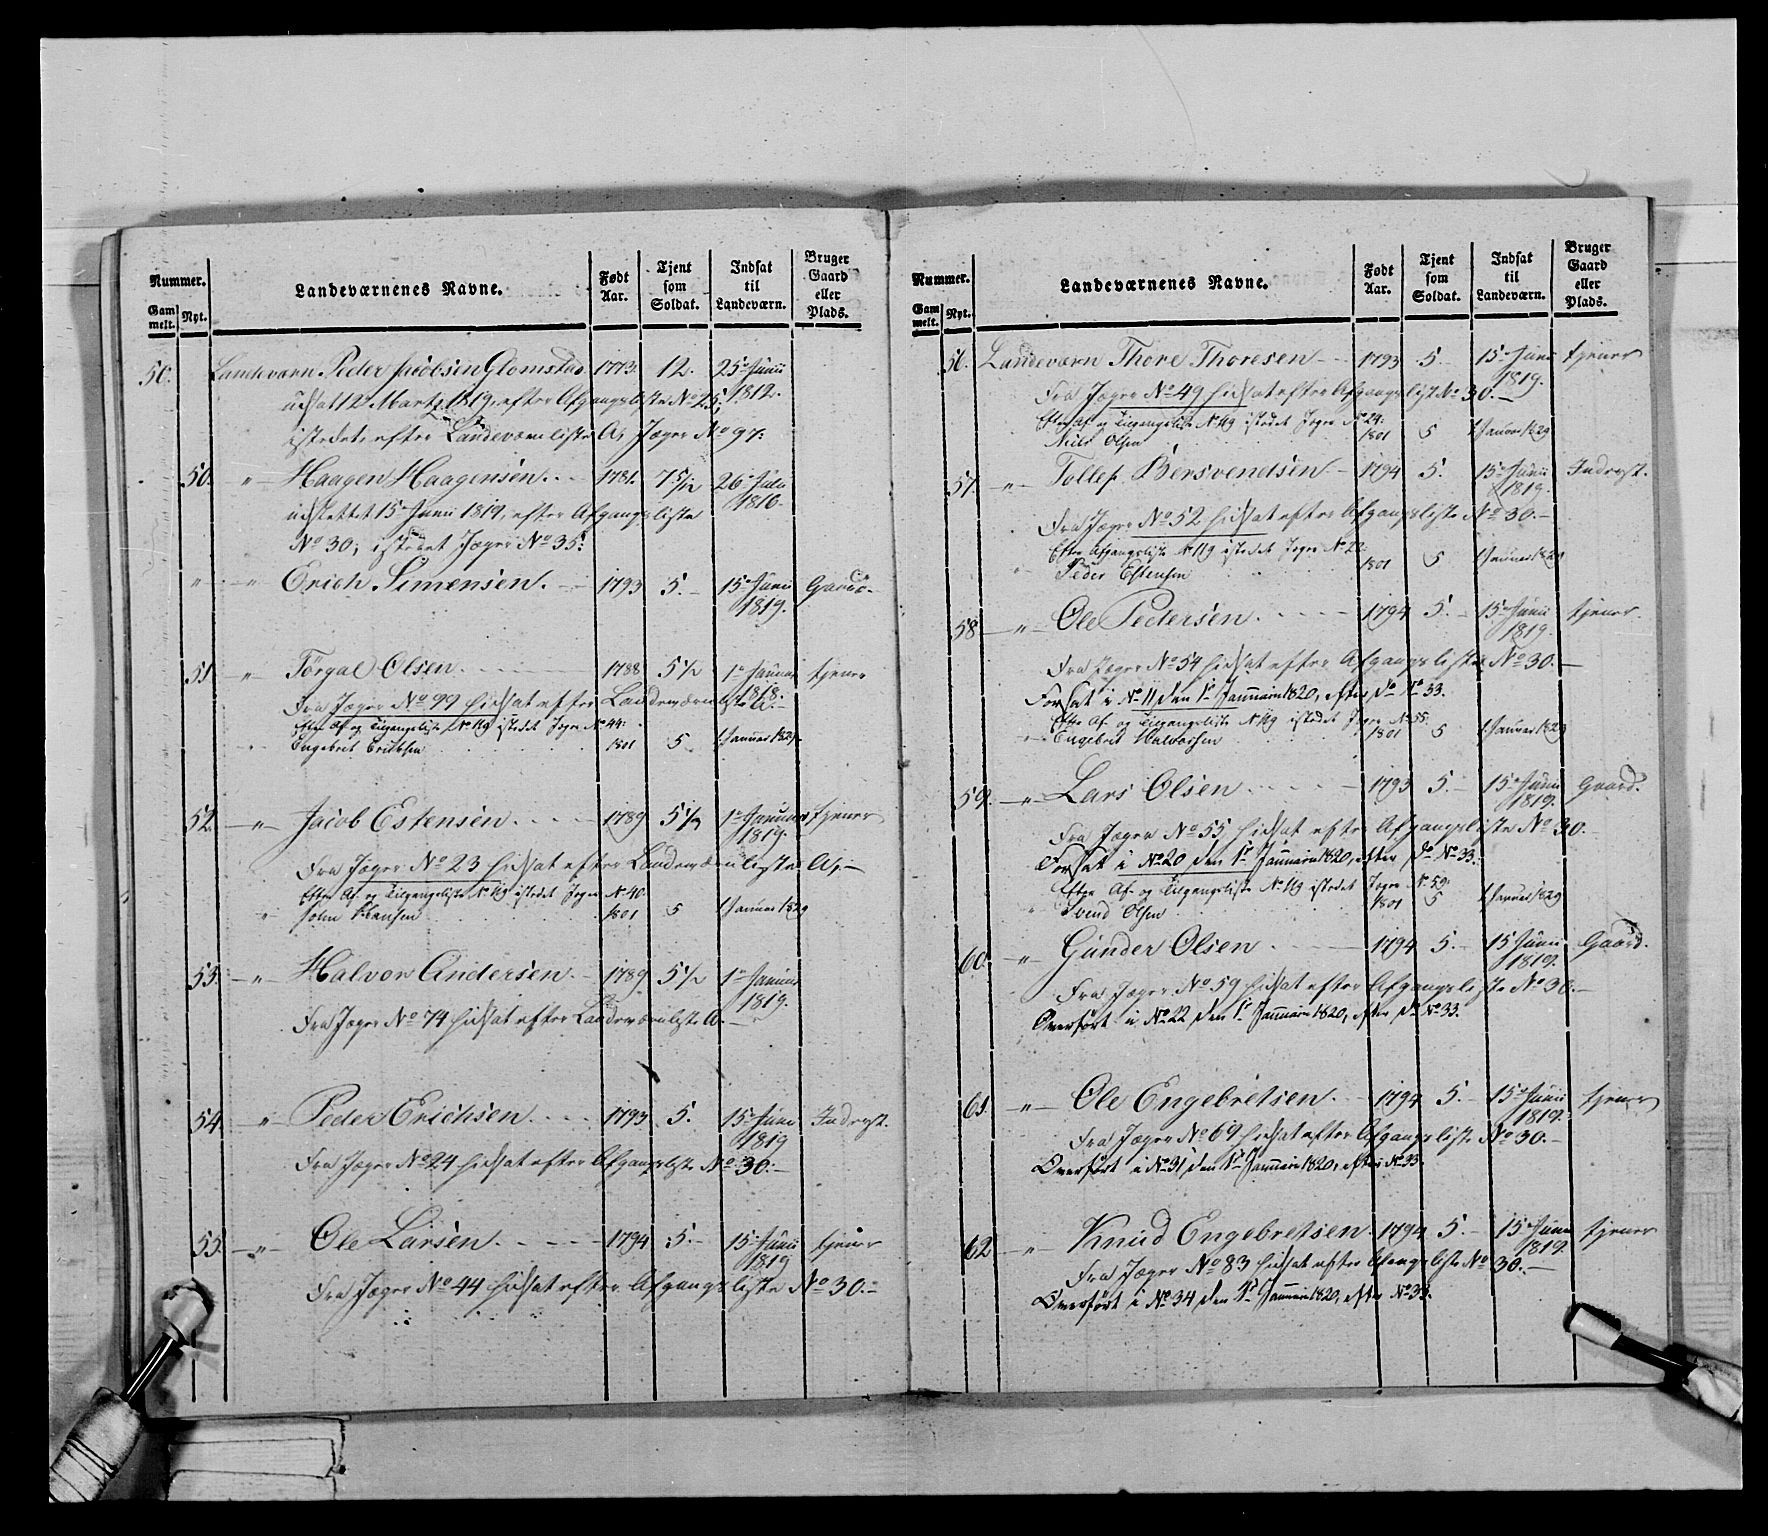 Nummer.
Gam
melt.
Nyt.
Landeværnenes Navne.
Født
Aar.
Tjent
som
Soldat.
Indsat
til
Landeværn.
Bruger
Gaard
eller
Plads.
50. Landeværn Peder Jacobsen Glomstad 1773. 12. 25 Junii 1812.
udsat 12 Martz 1819, efter Afgangsliste No 25,
istedet efter Landeværnliste A, Jæger No 97.
50. " Haagen Haagensen. 1781. 7 5/12 26 Julii 1816.
udslettet 15 Junii 1819, efter Afgangsliste
No 30; istedet Jæger No 35:
" " Erich Simensen. 1793 5. 15 Junii 1819. Gaard.
51 " Törgal Olsen. 1788 5 1/2 1 Januar 1818. tjener
Fra Jæger No 99 hidsat efter Landeværnliste A.
Efter Af og Tilgangsliste No 119 istedet Jeger No 44:
" Engebret Erichsen 1801 5 1 Januar 1829.
52. " Jacob Estensen. 1789 5 1/2 1 Januar 1819. tjener
Fra Jæger No 23 hidsat efter Landeværnliste A,
Efter Af og Tilgangsliste No 119 istedet Jeger No 40.
" John Hansen 1801 5 1 Januar 1829
53. " Halvor Andersen. 1789 5 1/2 1 Januar 1819.
Fra Jæger No 74 hidsat efter Landeværnliste A.
54. " Peder Erichsen. 1793 5. 15 Junii 1819 Inderst.
Fra Jæger No 24 hidsat efter Afgangsliste No 30.
55. " Ole Larsen. 1794 5. 15 Junii 1819 tjener
Fra Jæger No 44 hidsat efter Afgangsliste No 30.
Nummer.
Gam
melt.
Nyt.
Landeværnenes Navne.
Født
Aar.
Tjent
som
Soldat.
Indsat
til
Landeværn.
Bruger
Gaard
eller
Plads.
56. Landeværn Thore Thoresen 1793 5. 15 Junii 1819. tjener
Fra Jæger No 49 hidsat efter Afgangsliste No 30.
Efter Af og Tilgangsliste No 119 istedet Jeger No 24:
Niels Olsen 1801 5 1 Januar 1829
57. " Tollef Bersvendsen 1794 5. 15 Junii 1819. Inderst.
Fra Jæger No 52 hidsat efter Afgangsliste No 30.
Efter Afgangsliste No 119 istedet Jeger No 22:
" Peder Estensen 1801 5 1 Januar 1829
58 " Ole Pedersen. 1794 5. 15 Junii 1819. tjener.
Fra Jæger No 54 hidsat efter Afgangsliste No 30.
Forsat i No 11 den 1 Januarii 1820, efter do No 33.
Efter Af og Tilgangsliste No 119 istedet Jeger No 55:
" Engebret Halvorsen 1801 5 1 Januar 1829
59. " Lars Olsen 1793 5. 15 Junii 1819. Gaard.
Fra Jæger No 55, hidsat efter Afgangsliste No 30.
Forsat i No 20 den 1 Januarii 1820, efter do No 33.
Efter Af og Tilgangsliste No 119 istedet Jeger No 59:
" Svend Olsen 1801 5 1 Januar 1829
60. " Gunder Olsen 1794 5. 15 Junii 1819. Gaard.
Fra Jæger No 59 hidsat efter Afgangsliste No 30.
Overført i No 22 den 1 Januarii 1820, efter do No 33.
61. " Ole Engebretsen. 1794 5. 15 Junii 1819. tjener
Fra Jæger No 69 hidsat efter Afgangsliste No 30.
Overført i No 31 den 1 Januarii 1820, efter No 33.
62 " Knud Engebretsen. 1794 5. 15 Junii 1819. tjener
Fra Jæger No 83 hidsat efter Afgangsliste No 30.
Overført i No 34 den 1 Januarii 1820, efter No 33.